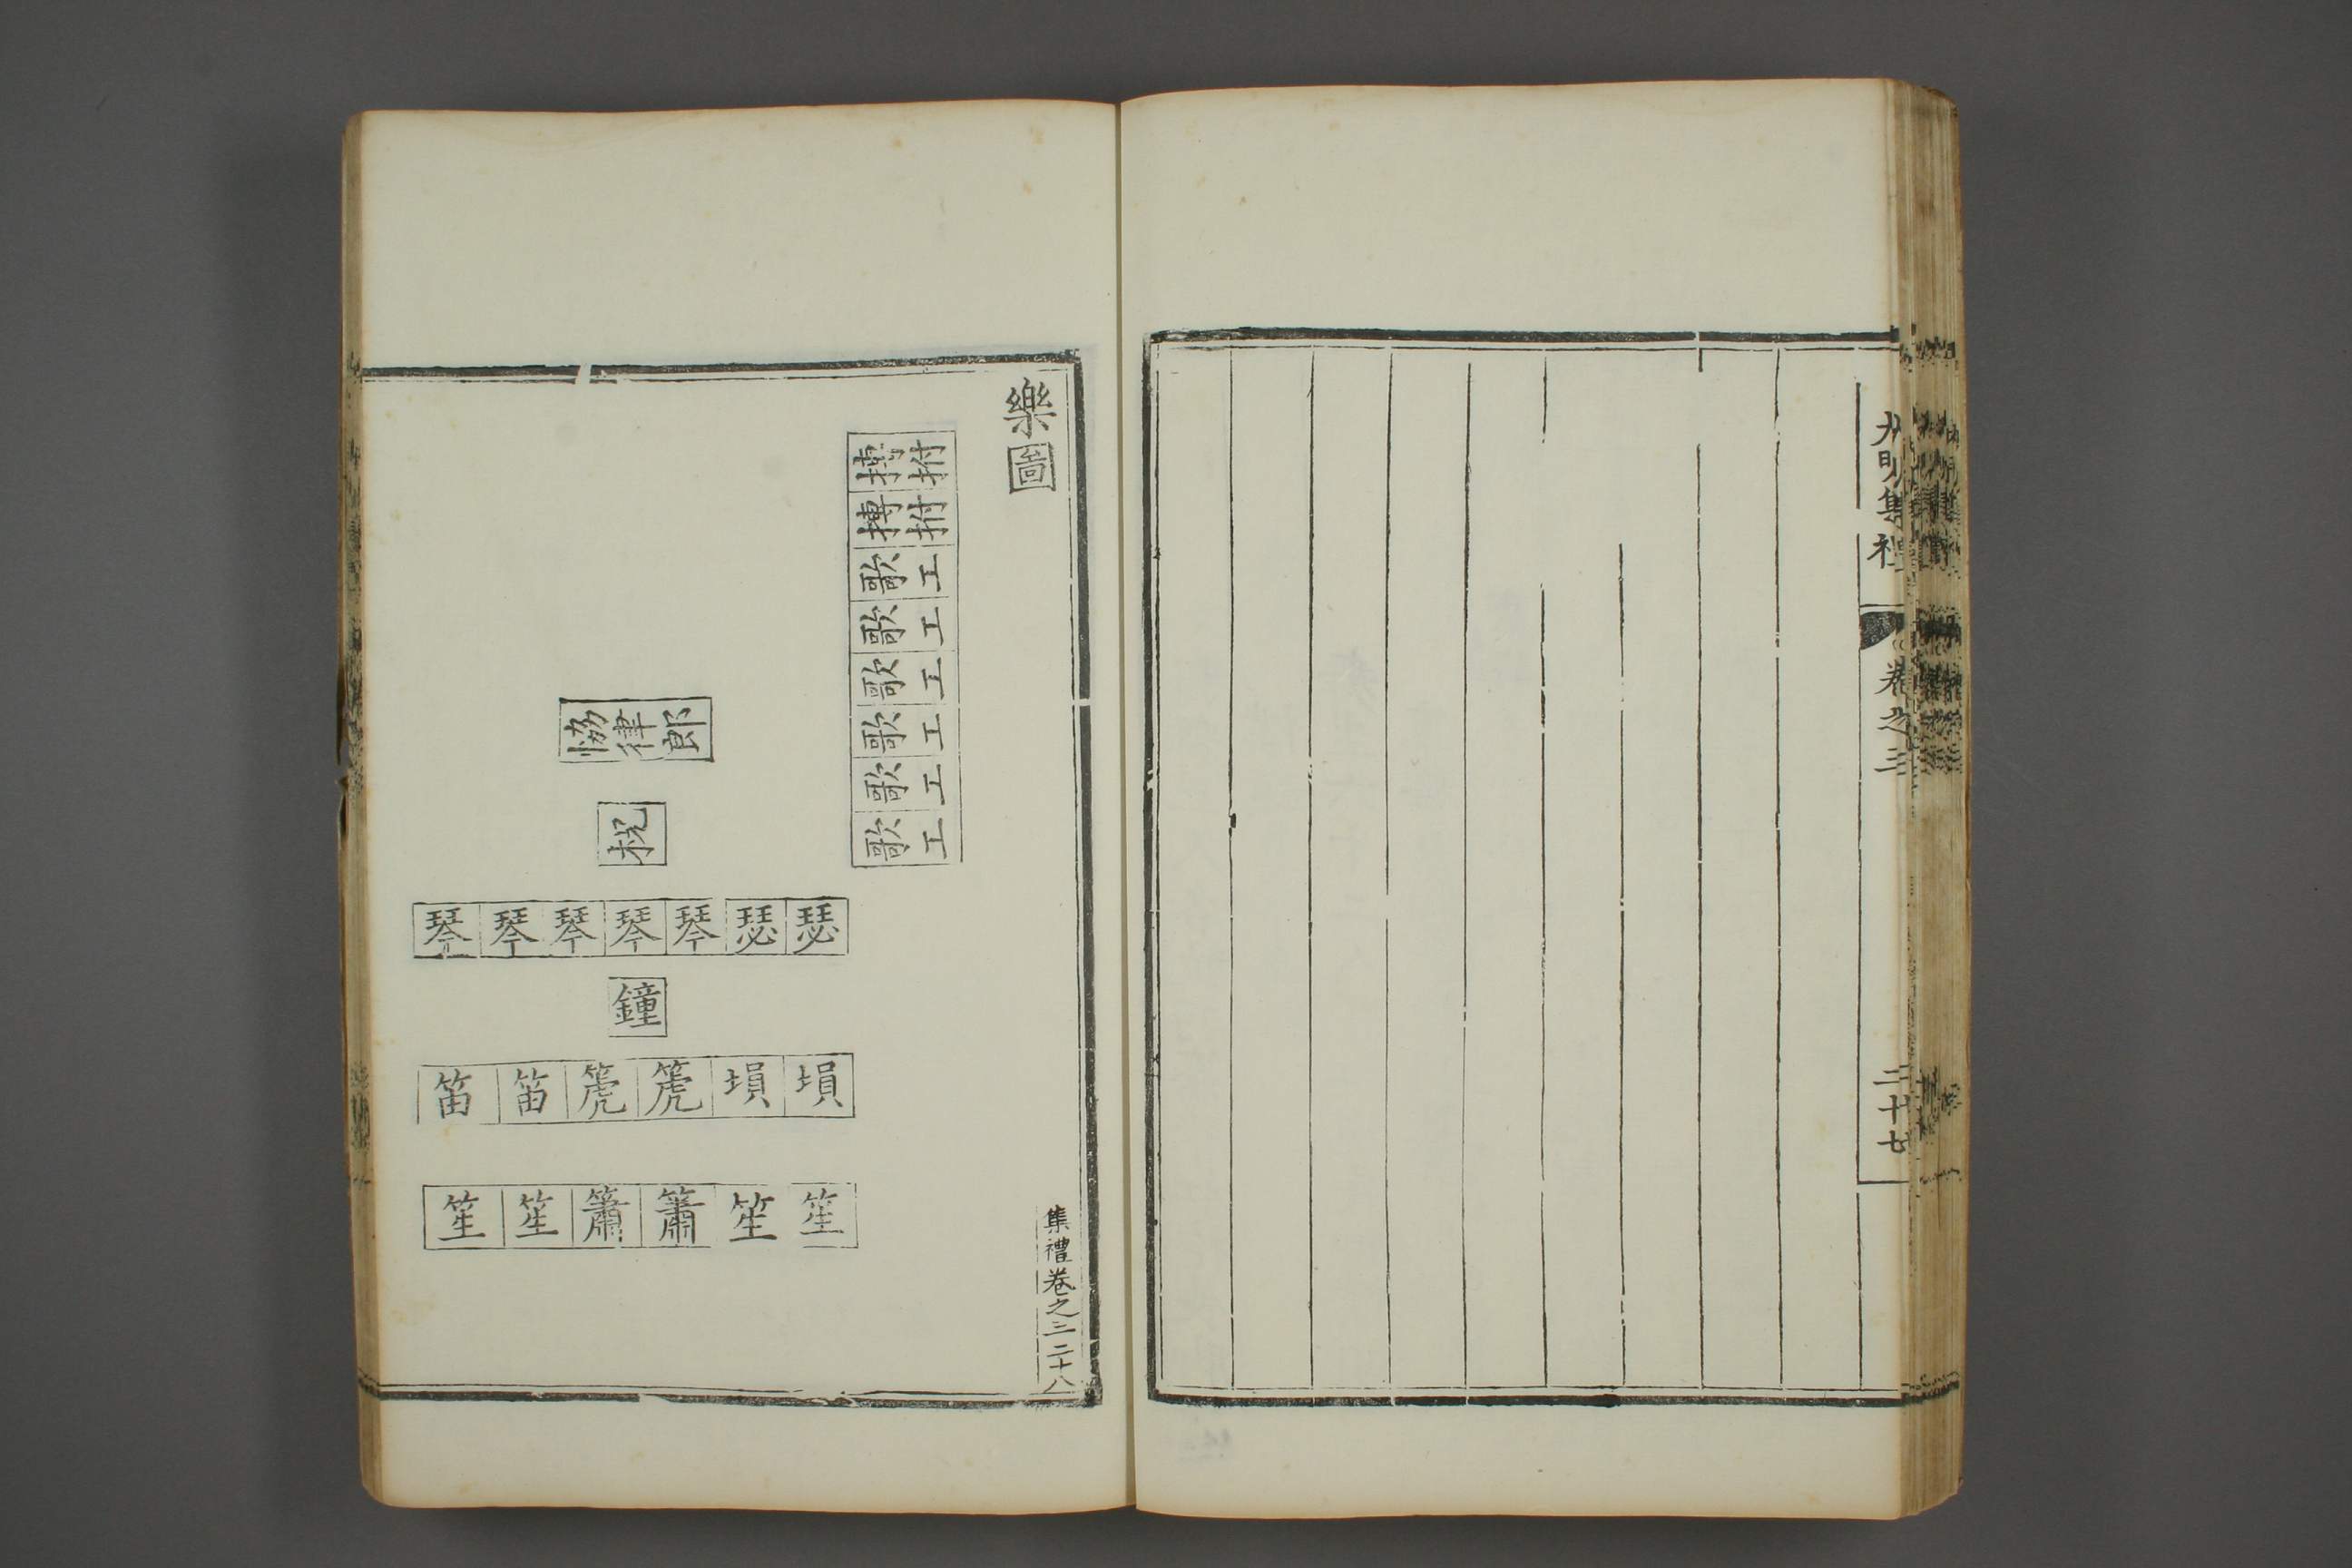 大明集禮
卷之三
二十七
樂圖
搏拊
搏拊
歌工
歌工
歌工
歌工
歌工
歌工
協律郎
柷
琴琴琴琴琴瑟瑟
鐘
笛笛箎箎塤塤
笙笙簫簫笙笙
集禮卷之三 二十八